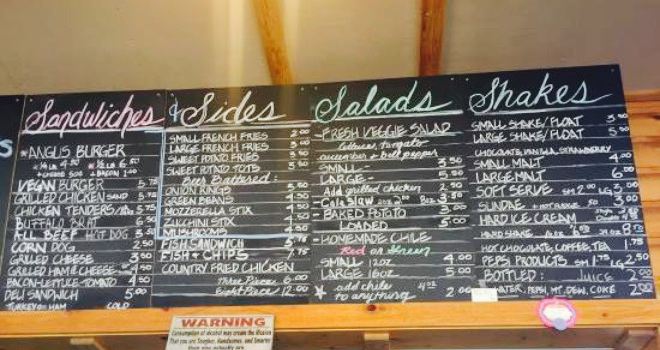 Sandwiches
* ANGUS BURGER
1/4 LB 4.50 * 1/2 LB 6.50
+ CHEESE 50¢ + BACON 1.00
VEGAN BURGER 5.75
GRILLED CHICKEN SAND 5.75
CHICKEN TENDERS
BUFFALO BRAT
ALL BEEF HOT DOG
CORN DOG 2.50
GRILLED CHEESE 3.50
GRILLED HAM & CHEESE 4.50
BACON-LETTUCE-TOMATO 4.50
DELI SANDWICH 5.00
TURKEY OR HAM COLD
& Sides
SMALL FRENCH FRIES 2.00
LARGE FRENCH FRIES
SWEET POTATO FRIES
SWEET POTATO TOTS
Beer Battered:
ONION RINGS
GREEN BEANS
MOZZERELLA STIX
ZUKCHINI STIX
MUSHROOMS
FISH SANDWICH 5.75
FISH & CHIPS 7.75
COUNTRY FRIED CHICKEN
Three Piece 6.00
Eight Piece 12.00
Salads
- FRESH VEGGIE SALAD
lettuce, tomato
cucumber & bell pepper
SMALL 3.50
LARGE 5.50
Add grilled chicken 2.50
- Cole Slaw 4 oz 2.00 8 oz 3.50
- BAKED POTATO 3.00
LOADED 5.00
- HOMEMADE CHILE
Red OR Green
SMALL 12oz
LARGE 16 oz 4.00
* add chile 4 oz 2.00
to anything
Shakes
SMALL SHAKE/FLOAT 3.50
LARGE SHAKE/FLOAT 5.50
CHOCOLATE, VANILLA, STRAWBERRY
SMALL MALT 4.00
LARGE MALT 6.00
SOFT SERVE SM 2.00 LG 3.00
SUNDAE
HARD ICE CREAM
HARD SHAKE
HOT CHOCOLATE, COFFEE, TEA 1.75
PEPSI PRODUCTS SM 1.75 LG
BOTTLED: JUICE 2.00
WATER, PEPSI, MT. DEW, COKE 2.00
WARNING
Consumption of alcohol may create the illusion
that you are Tougher, Handsomer, and Smarter